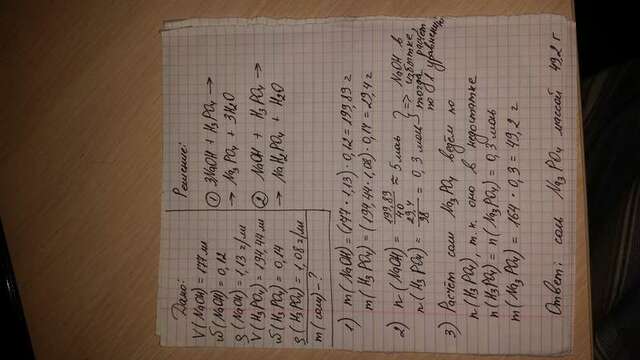 Дано:
V(NaOH) = 177 мл
ω(NaOH) = 0,12
ρ(NaOH) = 1,13 г/мл
V(H3PO4) = 194,44 мл
ω(H3PO4) = 0,14
ρ(H3PO4) = 1,08 г/мл
m(соли) - ?
Решение:
① 3NaOH + H3PO4 →
→ Na3PO4 + 3H2O
② NaOH + H3PO4 →
→ NaH2PO4 + H2O
1) m(NaOH) = (177 · 1,13) · 0,12 = 199,89 г
m(H3PO4) = (194,44 · 1,08) · 0,14 = 29,4 г
2) n(NaOH) = 199,89/40 ≈ 5 моль
n(H3PO4) = 29,4/98 = 0,3 моль
} => NaOH в
избытке,
тогда расчёт
по 1 уравнению
3) Расчёт соли Na3PO4 ведём по
n(H3PO4), т.к. оно в недостатке
n(H3PO4) = n(Na3PO4) = 0,3 моль
m(Na3PO4) = 164 · 0,3 = 49,2 г
Ответ: соль Na3PO4 массой 49,2 г